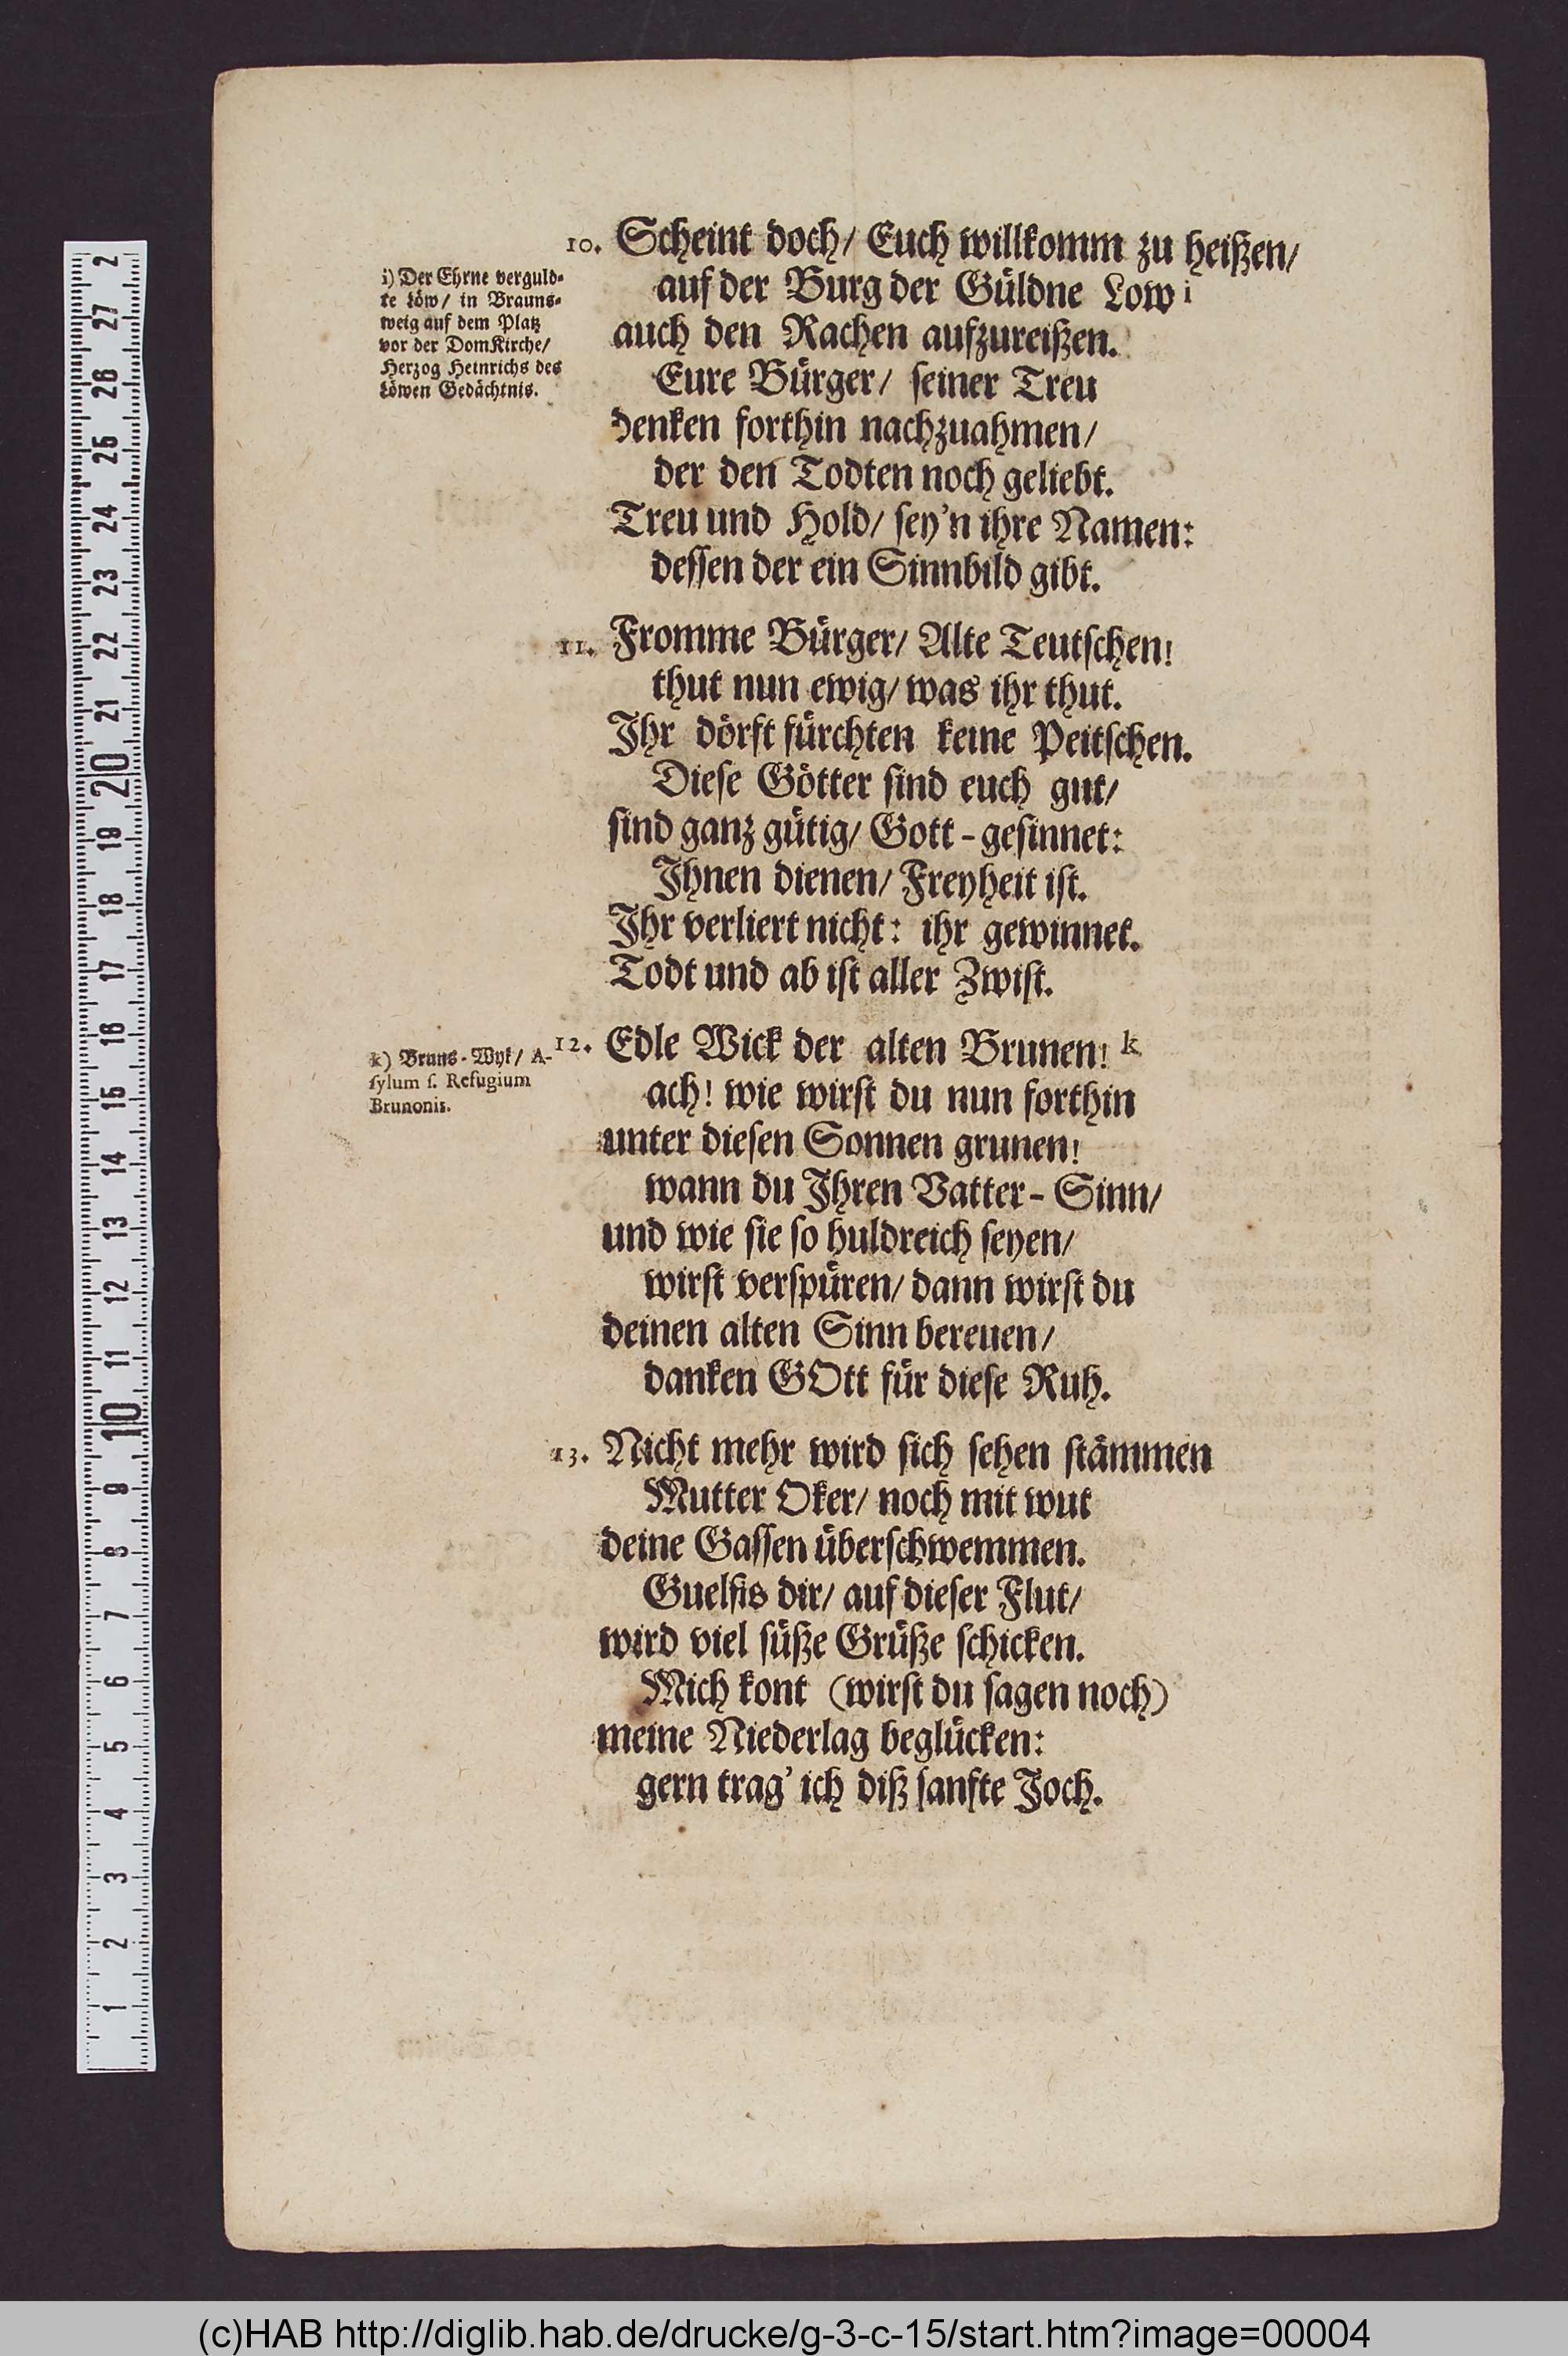 10. Scheint doch/ Euch willkomm zu heißen/
auf der Burg der Güldne Low i
auch den Rachen aufzureißen.
Eure Bürger/ seiner Treu
denken forthin nachzuahmen/
der den Todten noch geliebt.
Treu und Hold/ sey'n ihre Namen:
dessen der ein Sinnbild gibt.
i) Der Ehrne verguld-
te Löw/ in Brauns-
weig auf dem Platz
vor der DomKirche/
Herzog Heinrichs des
Löwen Gedächtnis.
11. Fromme Bürger/ Alte Teutschen!
thut nun ewig/ was ihr thut.
Ihr dörft fürchten keine Peitschen.
Diese Götter sind euch gut/
sind ganz gütig/ Gott-gesinnet:
Ihnen dienen/ Freyheit ist.
Ihr verliert nicht: ihr gewinnet.
Todt und ab ist aller Zwist.
12. Edle Wick der alten Brunen! k
ach! wie wirst du nun forthin
unter diesen Sonnen grunen!
wann du Ihren Vatter-Sinn/
und wie sie so huldreich seyen/
wirst verspüren/ dann wirst du
deinen alten Sinn bereuen/
danken GOtt für diese Ruh.
k) Bruns-Wyk/ A-
sylum s. Refugium
Brunonis.
13. Nicht mehr wird sich sehen stämmen
Mutter Oker/ noch mit wut
deine Gassen überschwemmen.
Guelfis dir/ auf dieser Flut/
wird viel süße Grüße schicken.
Mich kont (wirst du sagen noch)
meine Niederlag beglücken:
gern trag' ich diß sanfte Joch.
2
27
26
25
24
23
22
21
20
19
18
17
16
15
14
13
12
11
10
9
8
7
6
5
4
3
2
1
(c)HAB http://diglib.hab.de/drucke/g-3-c-15/start.htm?image=00004